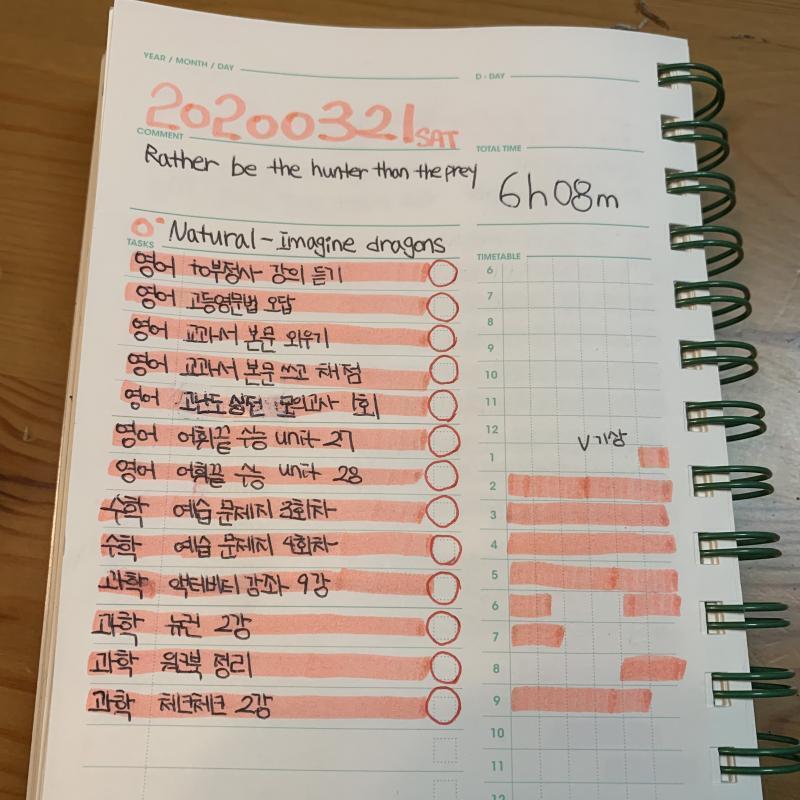 YEAR / MONTH / DAY
D - DAY
20200321 SAT
COMMENT
TOTAL TIME
Rather be the hunter than the prey
6h08m
Natural - Imagine dragons
TASKS
TIMETABLE
영어 to부정사 강의 듣기
영어 고등영문법 오답
영어 교과서 본문 외우기
영어 교과서 본문 쓰고 채점
영어 고난도 실전 모의고사 1회
영어 어휘끝 수능 unit 27
영어 어휘끝 수능 unit 28
수학 예습 문제지 3회차
수학 예습 문제지 4회차
과학 액티비티 강좌 9강
과학 뉴런 2강
과학 워크북 정리
과학 체크체크 2강
6
7
8
9
10
11
12
V기상
1
2
3
4
5
6
7
8
9
10
11
12